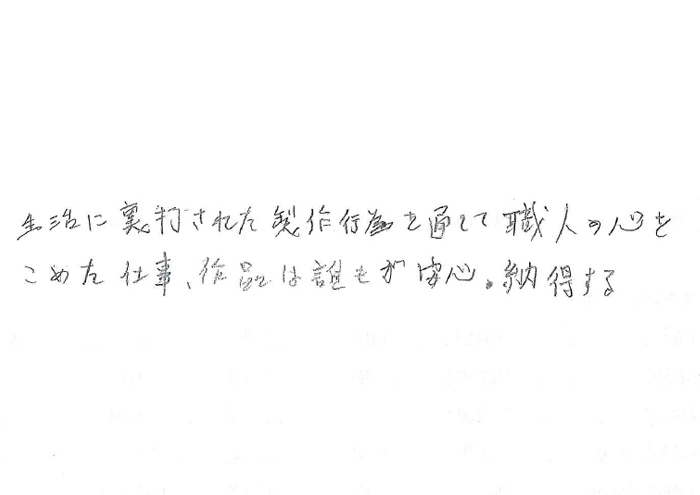 生活に裏打された製作行為を通して職人の心を
こめた仕事、作品は誰もが安心。納得する